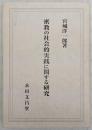 宮城洋一郎著
密教の社会的実践に関する研究
永田文昌堂